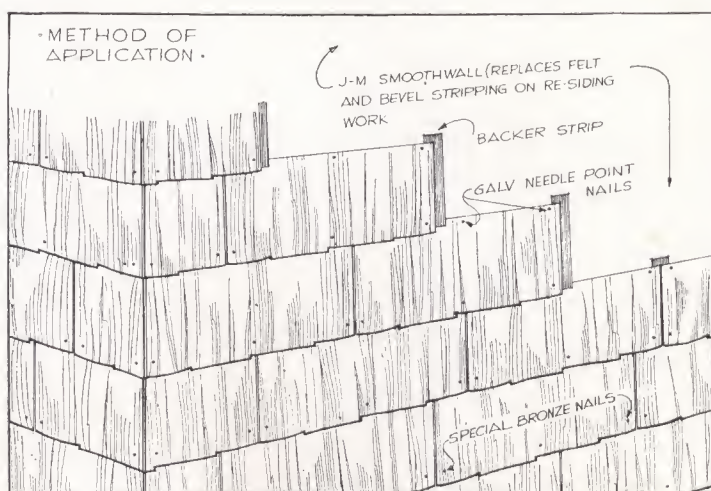 ·METHOD OF
APPLICATION·
J-M SMOOTHWALL (REPLACES FELT
AND BEVEL STRIPPING ON RE-SIDING
WORK
BACKER STRIP
GALV NEEDLE POINT
NAILS
SPECIAL BRONZE NAILS